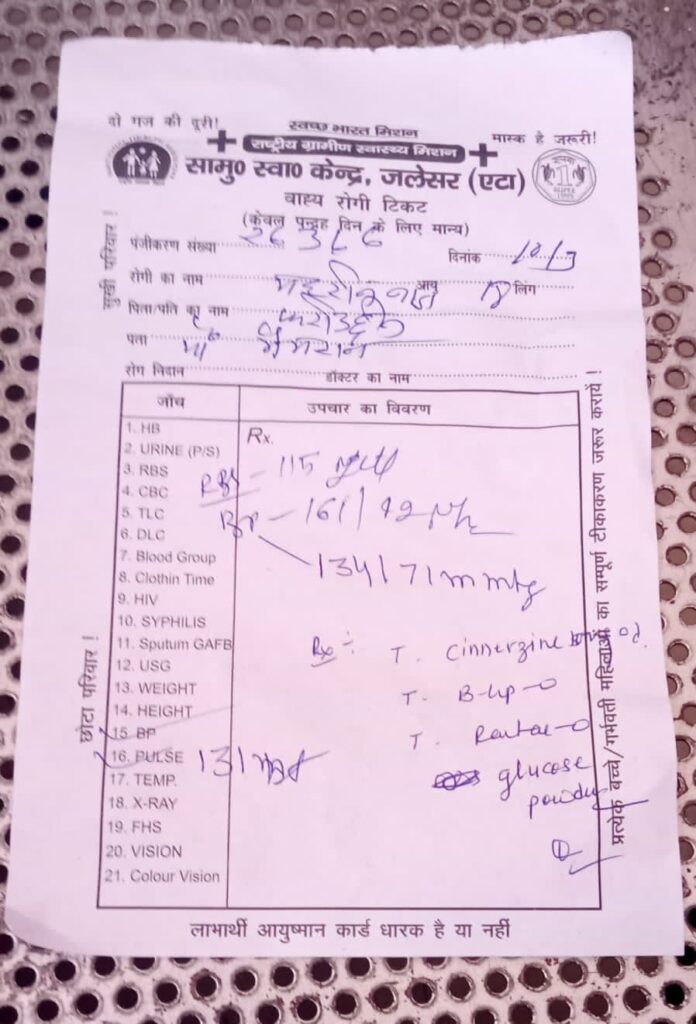 दो गज की दूरी!
स्वच्छ भारत मिशन
मास्क है जरूरी!
राष्ट्रीय ग्रामीण स्वास्थ्य मिशन
सामु० स्वा० केन्द्र, जलेसर (एटा)
वाह्य रोगी टिकट
(केवल पन्द्रह दिन के लिए मान्य)
पंजीकरण संख्या
दिनांक
रोगी का नाम आयु 18 लिंग
पिता/पति का नाम
पता
रोग निदान डॉक्टर का नाम
सुखी परिवार!
छोटा परिवार!
जाँच
उपचार का विवरण
1. HB
2. URINE (P/S)
3. RBS
4. CBC
5. TLC
6. DLC
7. Blood Group
8. Clothin Time
9. HIV
10. SYPHILIS
11. Sputum GAFB
12. USG
13. WEIGHT
14. HEIGHT
15. BP
16. PULSE 131
17. TEMP.
18. X-RAY
19. FHS
20. VISION
21. Colour Vision
Rx.
RBS - 115
BP - 161/92
134/71 mmHg
Rx :-
T. Cinnerzine
T. B-
T.
glucose
powder
प्रत्येक बच्चे/गर्भवती महिलाओं का सम्पूर्ण टीकाकरण जरूर करायें!
लाभार्थी आयुष्मान कार्ड धारक है या नहीं